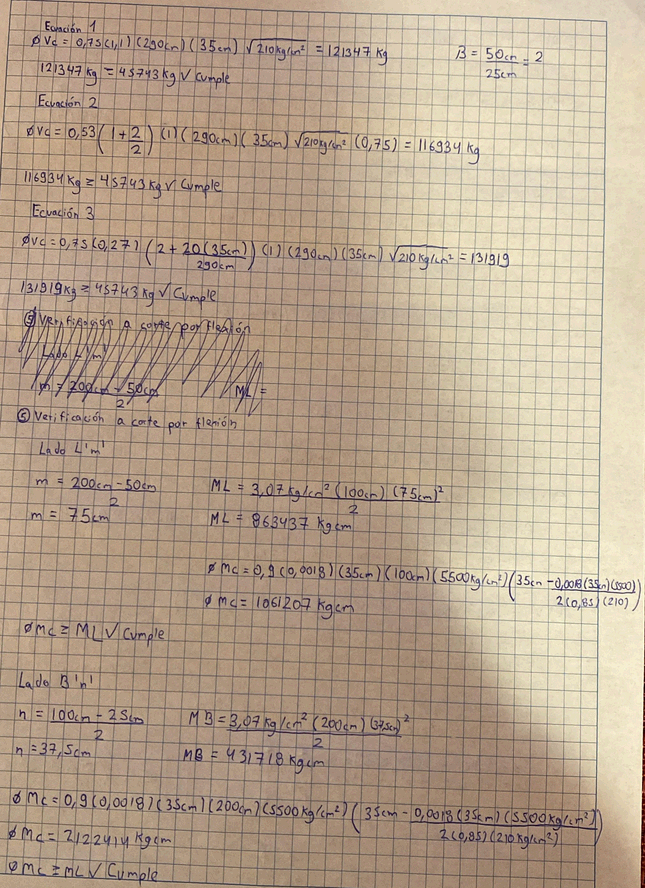 Ecuación 1
ϕVc = 0,75(1,1) (290cm) (35cm) √210kg/cm² = 121347 kg
B = 50cm/25cm = 2
121347 kg ≥ 45743 kg √ Cumple
Ecuación 2
ϕVc = 0,53 (1 + 2/2) (1) (290cm) (35cm) √210kg/cm² (0,75) = 116934 kg
116934 Kg ≥ 45743 kg √ Cumple
Ecuación 3
ϕVc = 0,75 (0,27) (2 + 20(35cm)/290cm) (1) (290cm) (35cm) √210Kg/cm² = 131919
131919 kg ≥ 45743 kg √ Cumple
⑤ Verificación a corte por flexión
Lado L'm'
m = 200cm - 50cm/2
ML =
⑤ Verificación a corte por flexión
Lado L'm'
m = 200cm - 50cm/2
ML = 3,07 kg/cm² (100cm) (75cm)²/2
m = 75cm
ML = 863437 Kgcm
ϕMc = 0,9 (0,0018) (35cm) (100cm) (5500kg/cm²) (35cm - 0,0018(35cm)(5500)/2(0,85)(210))
ϕMc = 1061207 Kgcm
ϕMc ≥ ML √ Cumple
Lado B'n'
n = 100cm - 25cm/2
MB = 3,07 Kg/cm² (200cm) (37,5cm)²/2
n = 37,5cm
MB = 431718 Kgcm
ϕMc = 0,9 (0,0018) (35cm) (200cm) (5500kg/cm²) (35cm - 0,0018 (35cm) (5500kg/cm²)/2(0,85)(210kg/cm²))
ϕMc = 2122414 Kgcm
ϕMc ≥ ML √ Cumple